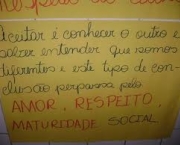 Aceitar é conhecer o outro e
saber entender que somos
diferentes e este tipo de con-
clusão perpassa pelo
AMOR, RESPEITO,
MATURIDADE SOCIAL